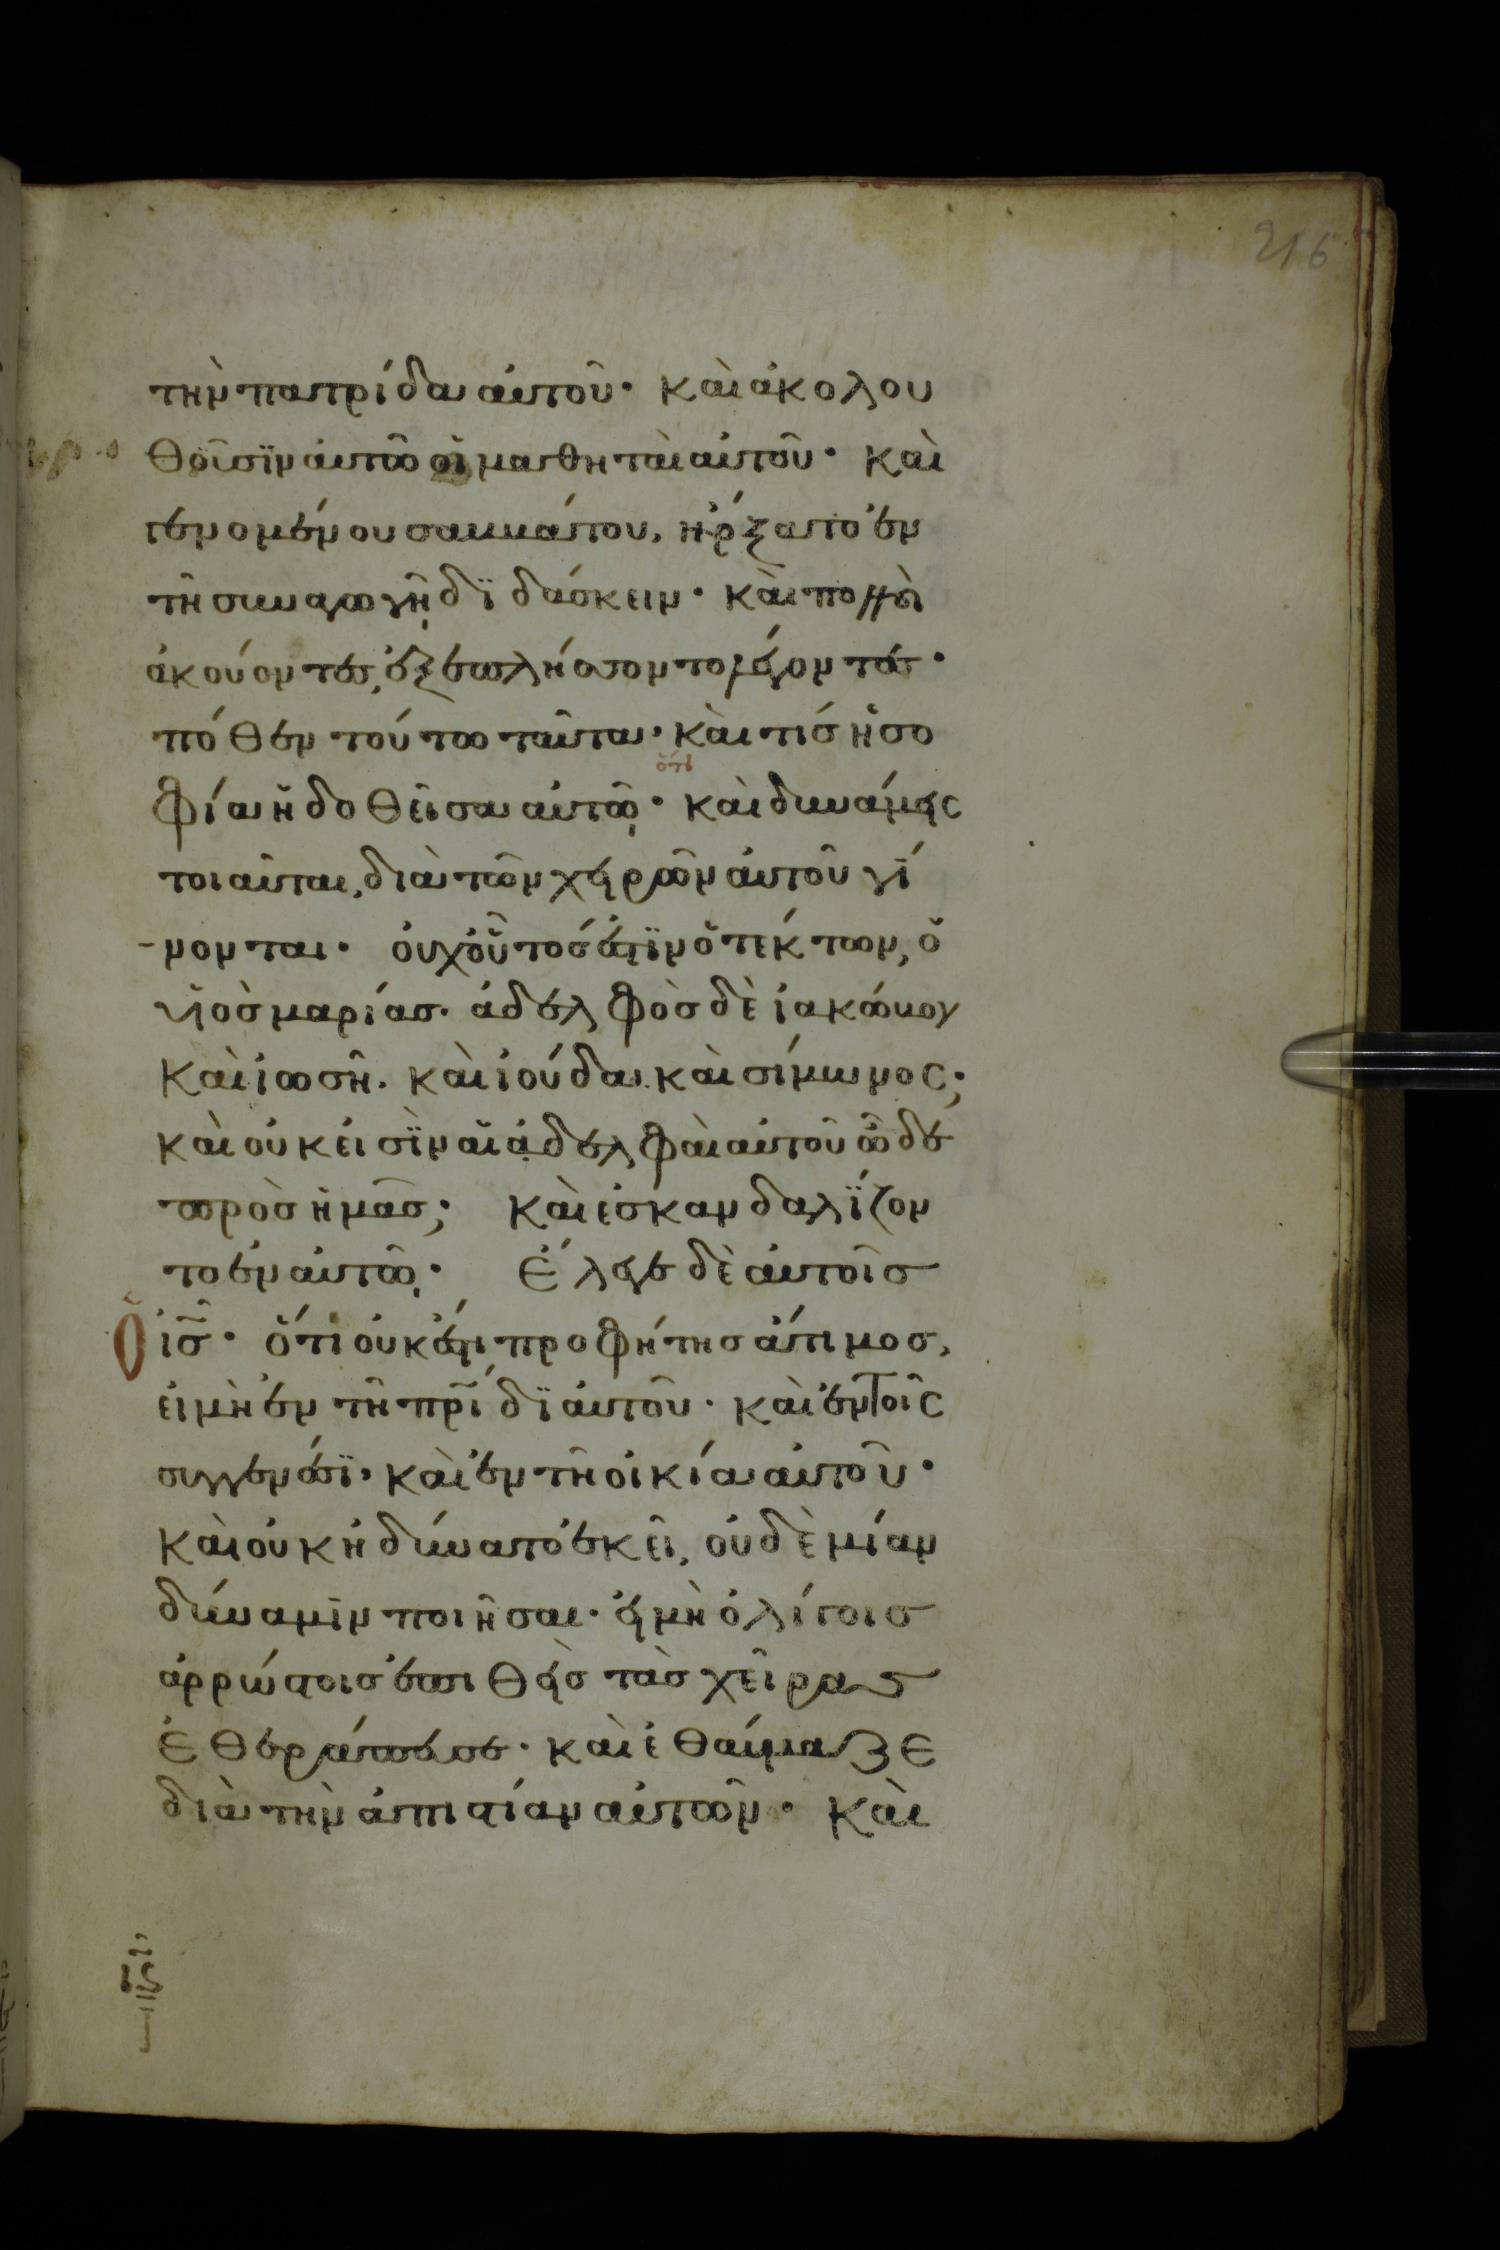 216
τὴν πατρίδα αὐτοῦ· καὶ ἀκολου
θοῦσϊν αὐτῶ οἱ μαθηταὶ αὐτοῦ· καὶ
γενομένου σαββάτου, ἤρξατο ἐν
τῆ συναγωγῇ δϊδάσκειν· καὶ πολλοὶ
ἀκούοντες, ἐξεπλήσσοντο λέγοντες·
πόθεν τούτω ταῦτα, καὶ τίς ἡ σο
ὅτι
φία ἡ δοθεῖσα αὐτῷ· καὶ δυνάμεις
τοιαῦται, διὰ τῶν χειρῶν αὐτοῦ γί
νονται· οὐχ οὗτός ἐστϊν ὁ τέκτων, ὁ
υἱὸς μαρίας· ἀδελφὸς δὲ ἰακώβου
καὶ ἰωσῆ· καὶ ἰούδα· καὶ σίμωνος;
καὶ οὐκ εἰσὶν αἱ ἀδελφαὶ αὐτοῦ ὧδε
πρὸς ἡμᾶς; καὶ ἐσκανδαλΐζον
το ἐν αὐτῷ· ἔλεγε δὲ αὐτοῖς
ὁ ἰς̅· ὅτι οὐκ ἔστι προφήτης ἄτιμος,
εἰ μὴ ἐν τῆ πρ̅ίδϊ αὐτοῦ· καὶ ἐν τοῖς
συγγενέσϊ, καὶ ἐν τῆ οἰκία αὐτοῦ·
καὶ οὐκ ἠδύνατο ἐκεῖ, οὐδὲ μίαν
δύναμϊν ποιῆσαι· εἰ μὴ ὀλίγοις
ἀρρώστοις ἐπιθεὶς τὰς χεῖρας
ἐθεράπευσε· καὶ ἐθαύμαζε
διὰ τὴν ἀπιστίαν αὐτῶν· καὶ